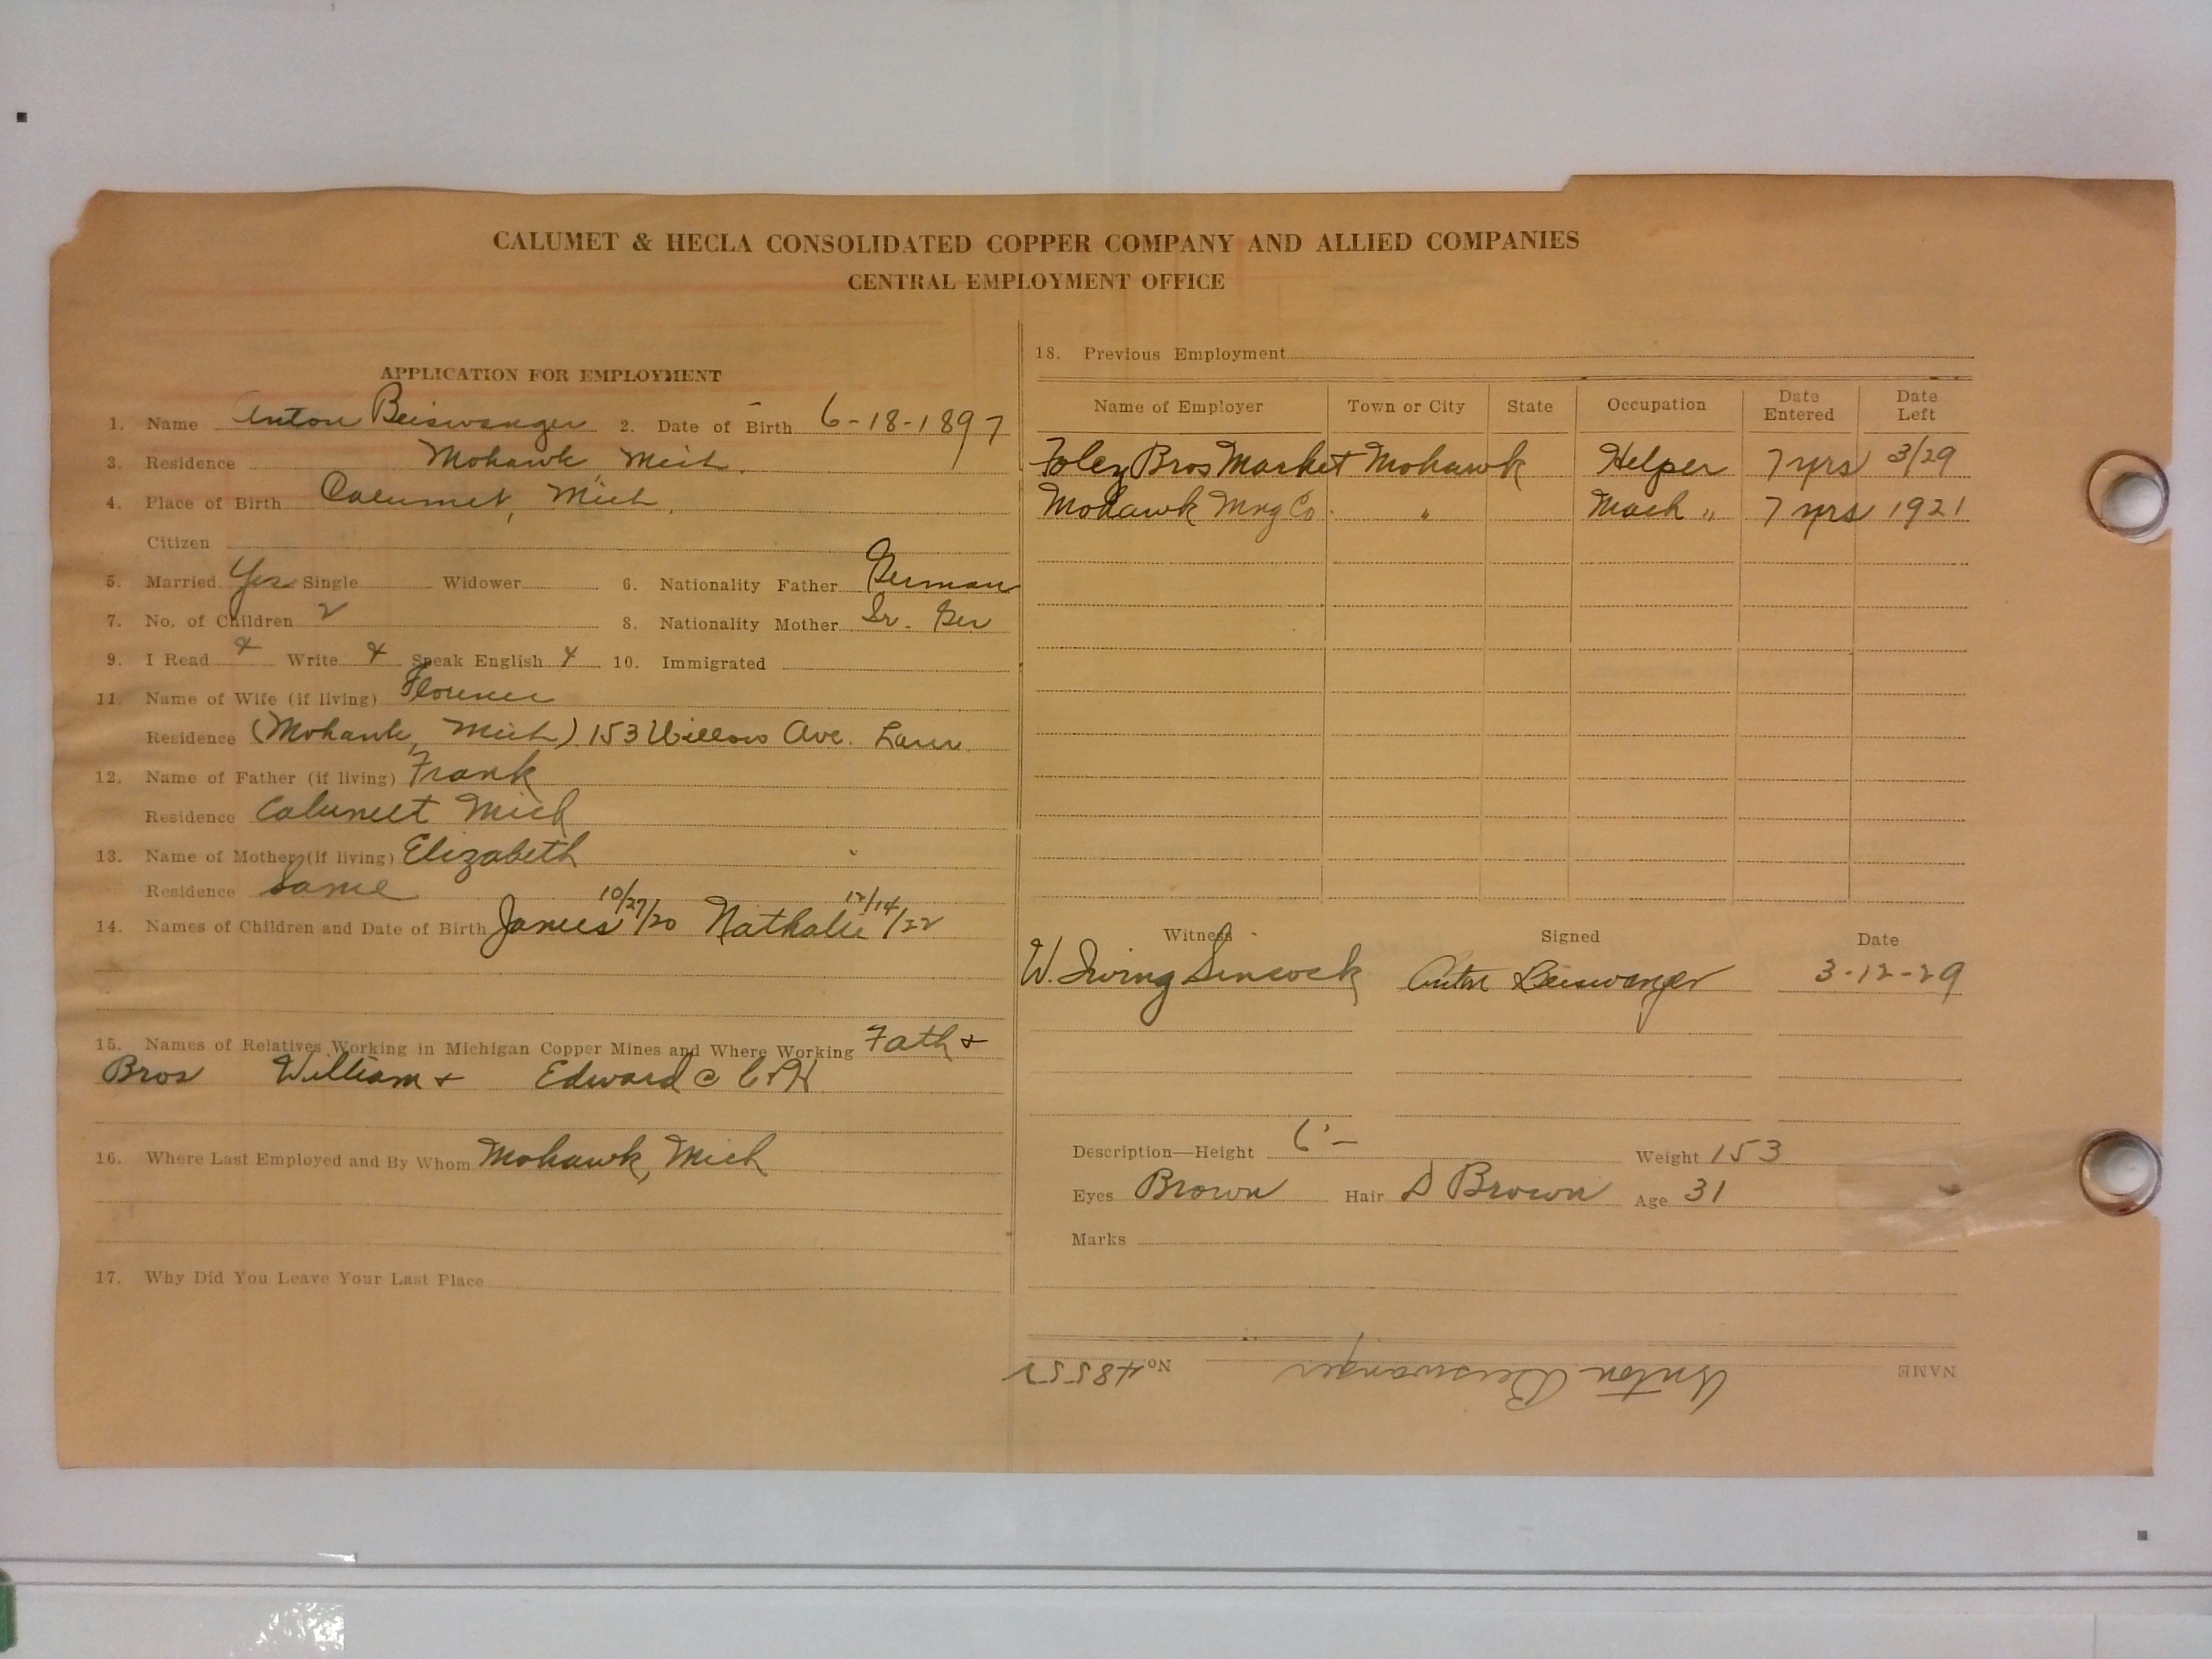 CALUMET & HECLA CONSOLIDATED COPPER COMPANY AND ALLIED COMPANIES
CENTRAL EMPLOYMENT OFFICE
APPLICATION FOR EMPLOYMENT
1. Name Anton Beiswanger 2. Date of Birth 6-18-1897
3. Residence Mohawk, Mich.
4. Place of Birth Calumet, Mich.
Citizen
5. Married Yes Single Widower 6. Nationality Father German
7. No. of Children 2 8. Nationality Mother Ger
9. I Read Write Speak English 10. Immigrated
11. Name of Wife (if living) Florence
Residence (Mohawk, Mich) 153 Willow Ave. Laur.
12. Name of Father (if living) Frank
Residence Calumet Mich
13. Name of Mother (if living) Elizabeth
Residence Same
14. Names of Children and Date of Birth James 10/27/20 Nathalie 12/14/22
15. Names of Relatives Working in Michigan Copper Mines and Where Working Fath +
Bros William + Edward @ C+H
16. Where Last Employed and By Whom Mohawk, Mich
17. Why Did You Leave Your Last Place
18. Previous Employment
Name of Employer Town or City State Occupation Date Entered Date Left
Foley Bros Market Mohawk Helper 7 yrs 3/29
Mohawk Mng Co. " Mach " 7 yrs 1921
Witness Signed Date
W. Irving Sincock Anton Beiswanger 3-12-29
Description—Height 6'- Weight 153
Eyes Brown Hair D Brown Age 31
Marks
NAME Anton Beiswanger No 48552